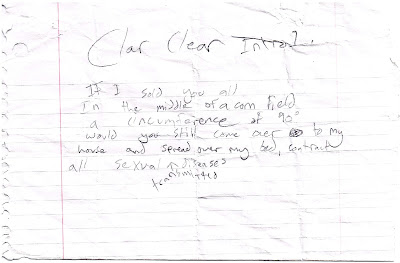 Clar Clear
If I sold you all
In the middle of a corn field
a circumference of 90°
would you still come over to my
house and spread over my bed, contract
all sexual diseases
transmitted